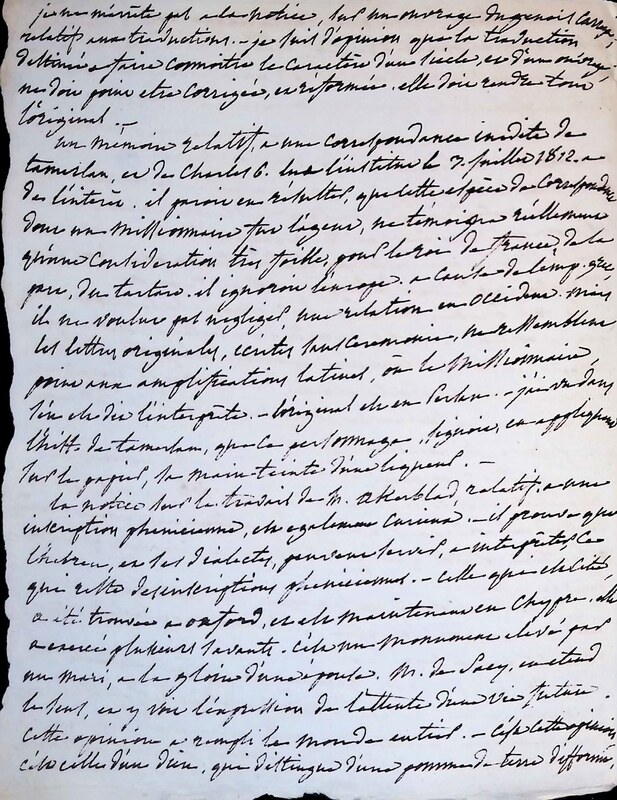 je ne m'arrête pas a la notice, sur un ouvrage du
relatif aux traductions. - je suis d'opinion que la traduction
destinée a faire connoître le caractère d'un siècle, et d'un ouvrage
ne doit point etre corrigée, et réformée. elle doit rendre tout
l'original. -
un mémoire relatif, a une correspondance inédite de
tamerlan, et de Charles 6. lu a l'institut le 3. juillet 1812. a
de l'intérêt. il paroit en résulter, que cette espèce de correspondance
dont un missionnaire fut l'agent, ne temoigna réellement
qu'une consideration très foible, pour le roi de france, de la
part, du tartare. il ignoroit l'envoyé. a cause de l'emp. grec,
il ne voulut pas negliger, une relation en occident. mais
les lettres originales, écrites sans ceremonie, ne ressemblent
point aux amplifications latines, où le missionnaire,
s'en est dit l'interprète. - l'original est en Persan. - j'ai vu dans
l'hist. de tamerlan, que ce personnage, signoit, en appliquant
sur le papier, sa main teinte d'une liqueur. -
la notice sur le travail de M. akerblad, relatif a une
inscription phénicienne, est egalement curieux. - il prouve que
l'hebreu, et ses dialectes, peuvent servir, a interprêter ce
qui reste des inscriptions phéniciennes. - celle qui est cité
a été trouvée a oxford, et est maintenant en Chypre. elle
a exercé plusieurs savants. c'est un monument elevé par
un mari, a la gloire d'une épouse. M. de Sacy, en etend
le sens, et y voit l'expression de l'attente d'une vie future.
cette opinion a rempli le monde entier. - c'est cette opinion
c'est celle d'un dieu, qui distingue d'une pomme de terre difforme,